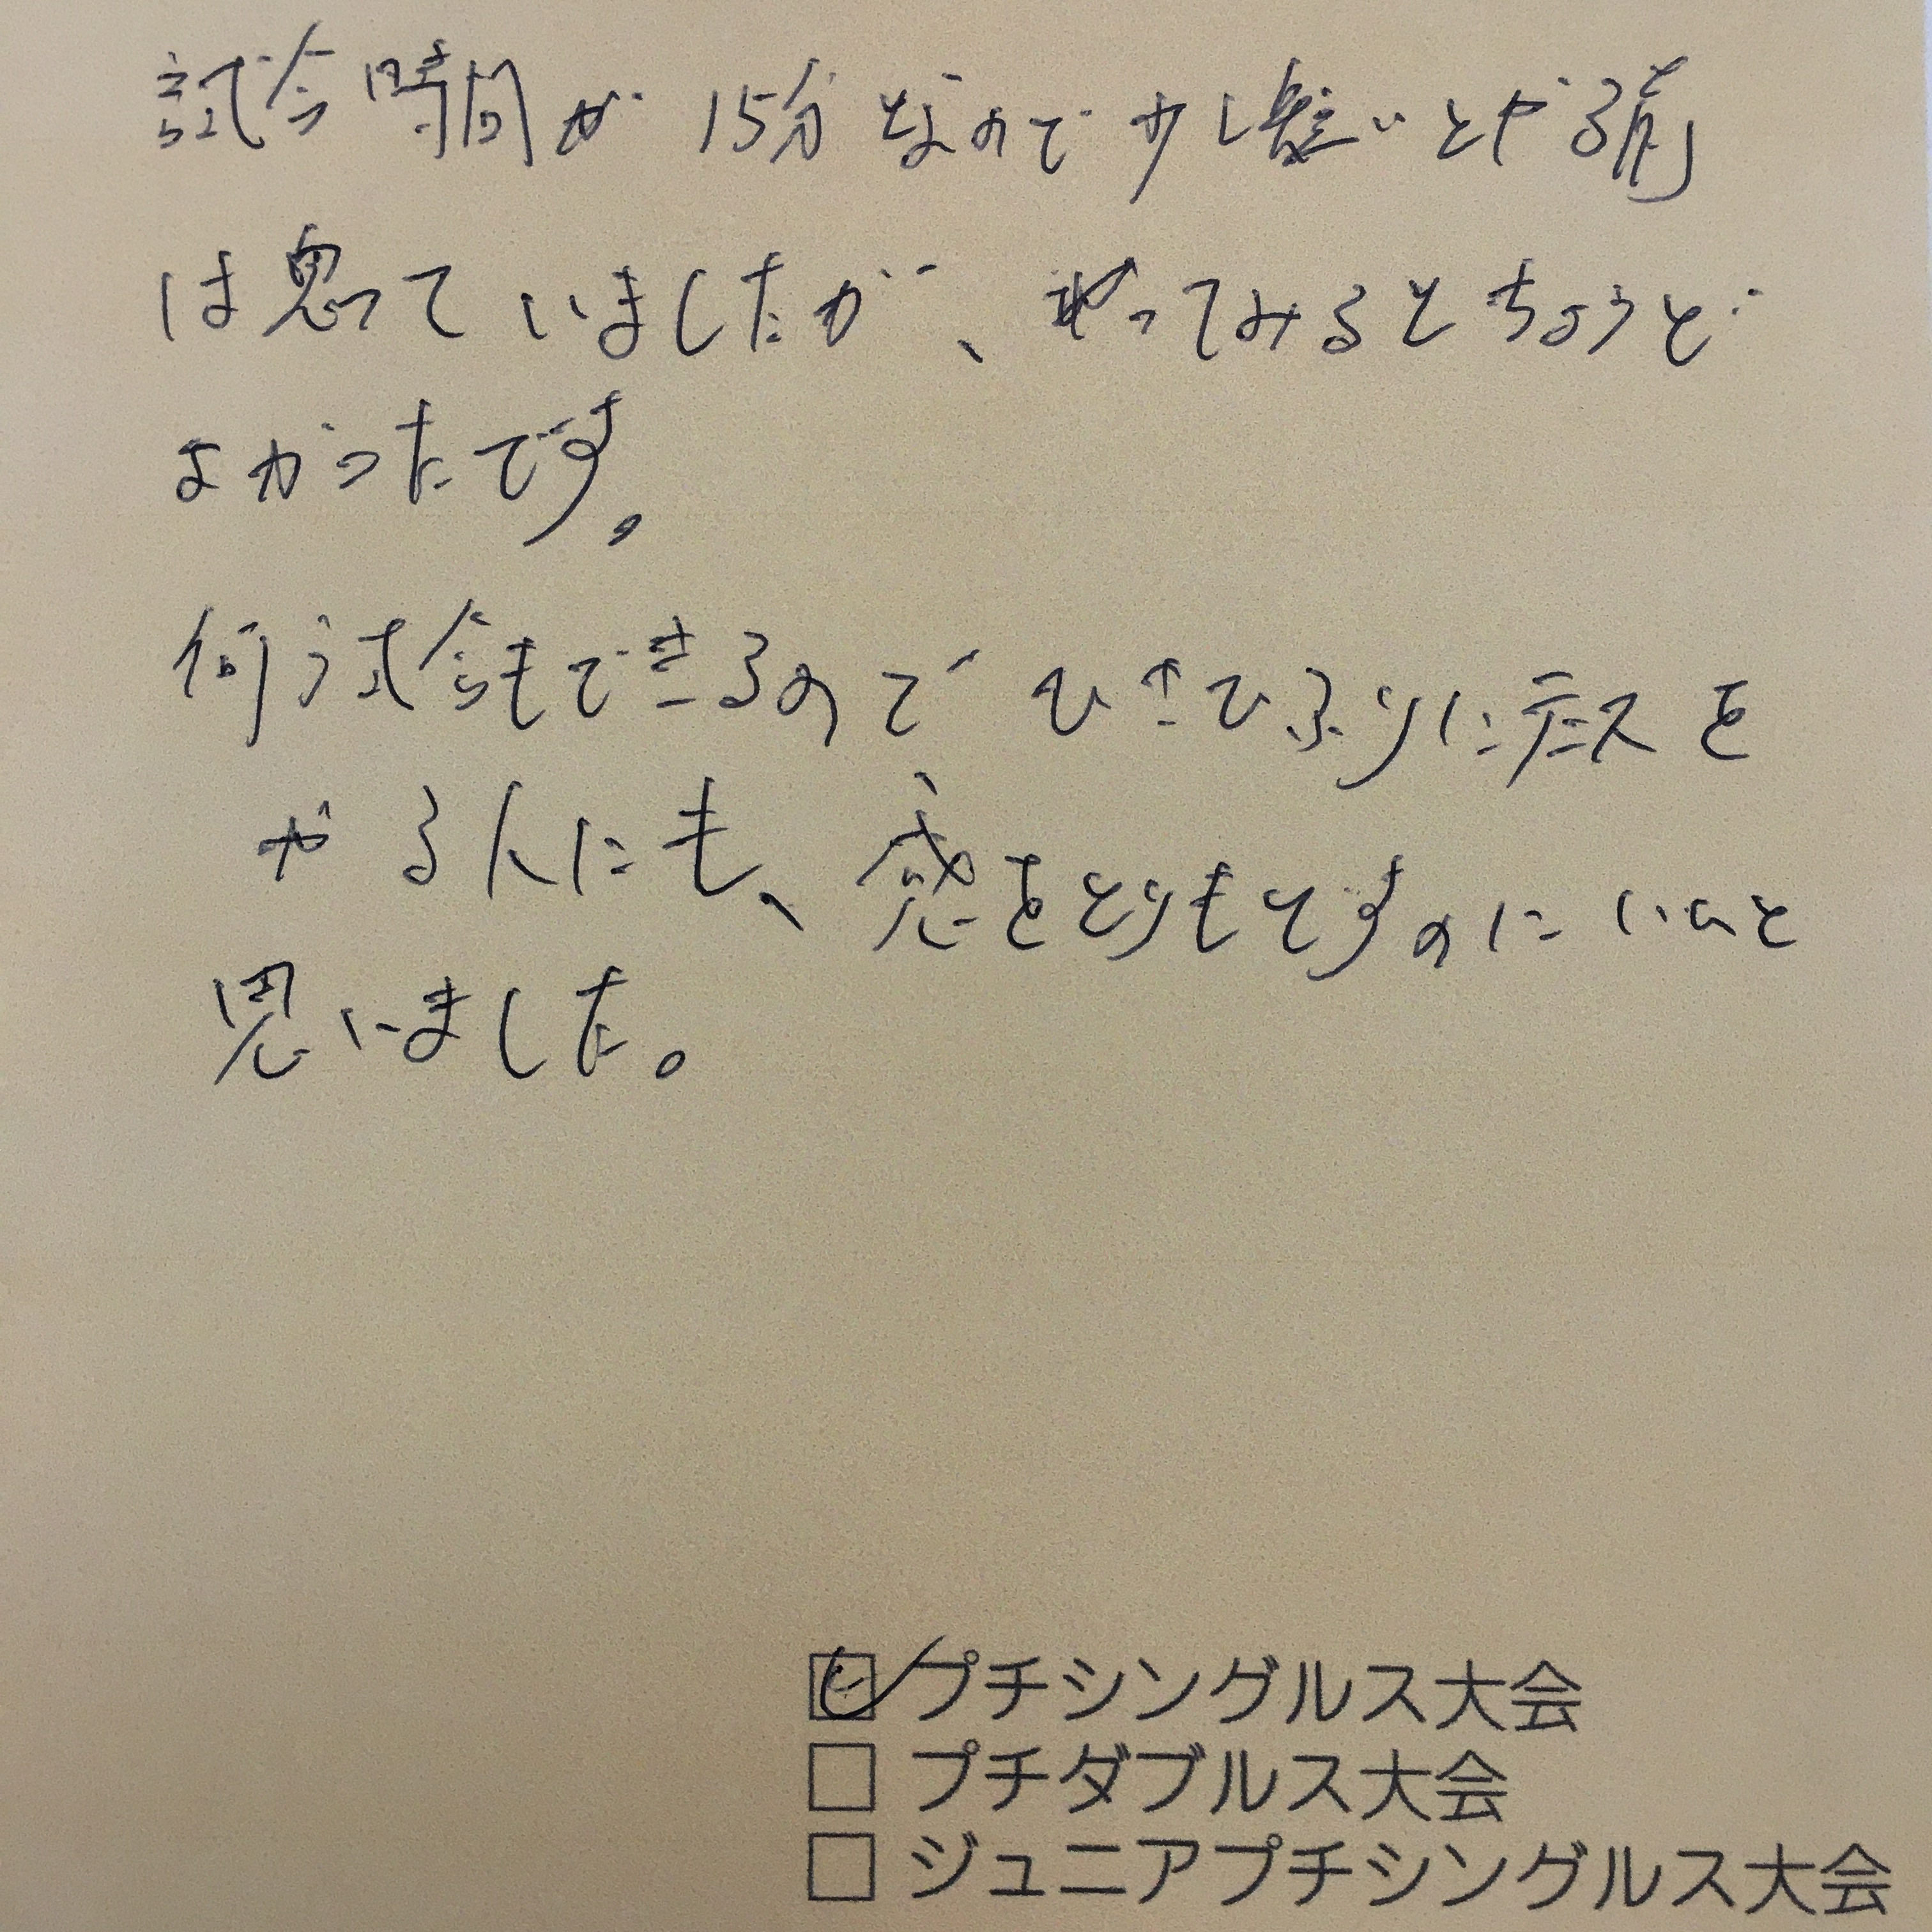 試合時間が15分なので少し短いとやる前
は思っていましたが、やってみるとちょうど
よかったです。
何う試合もできるので ひさびさふりにテニスを
やる人にも、感をとりもどすのにいいと
思いました。
プチシングルス大会
プチダブルス大会
ジュニアプチシングルス大会